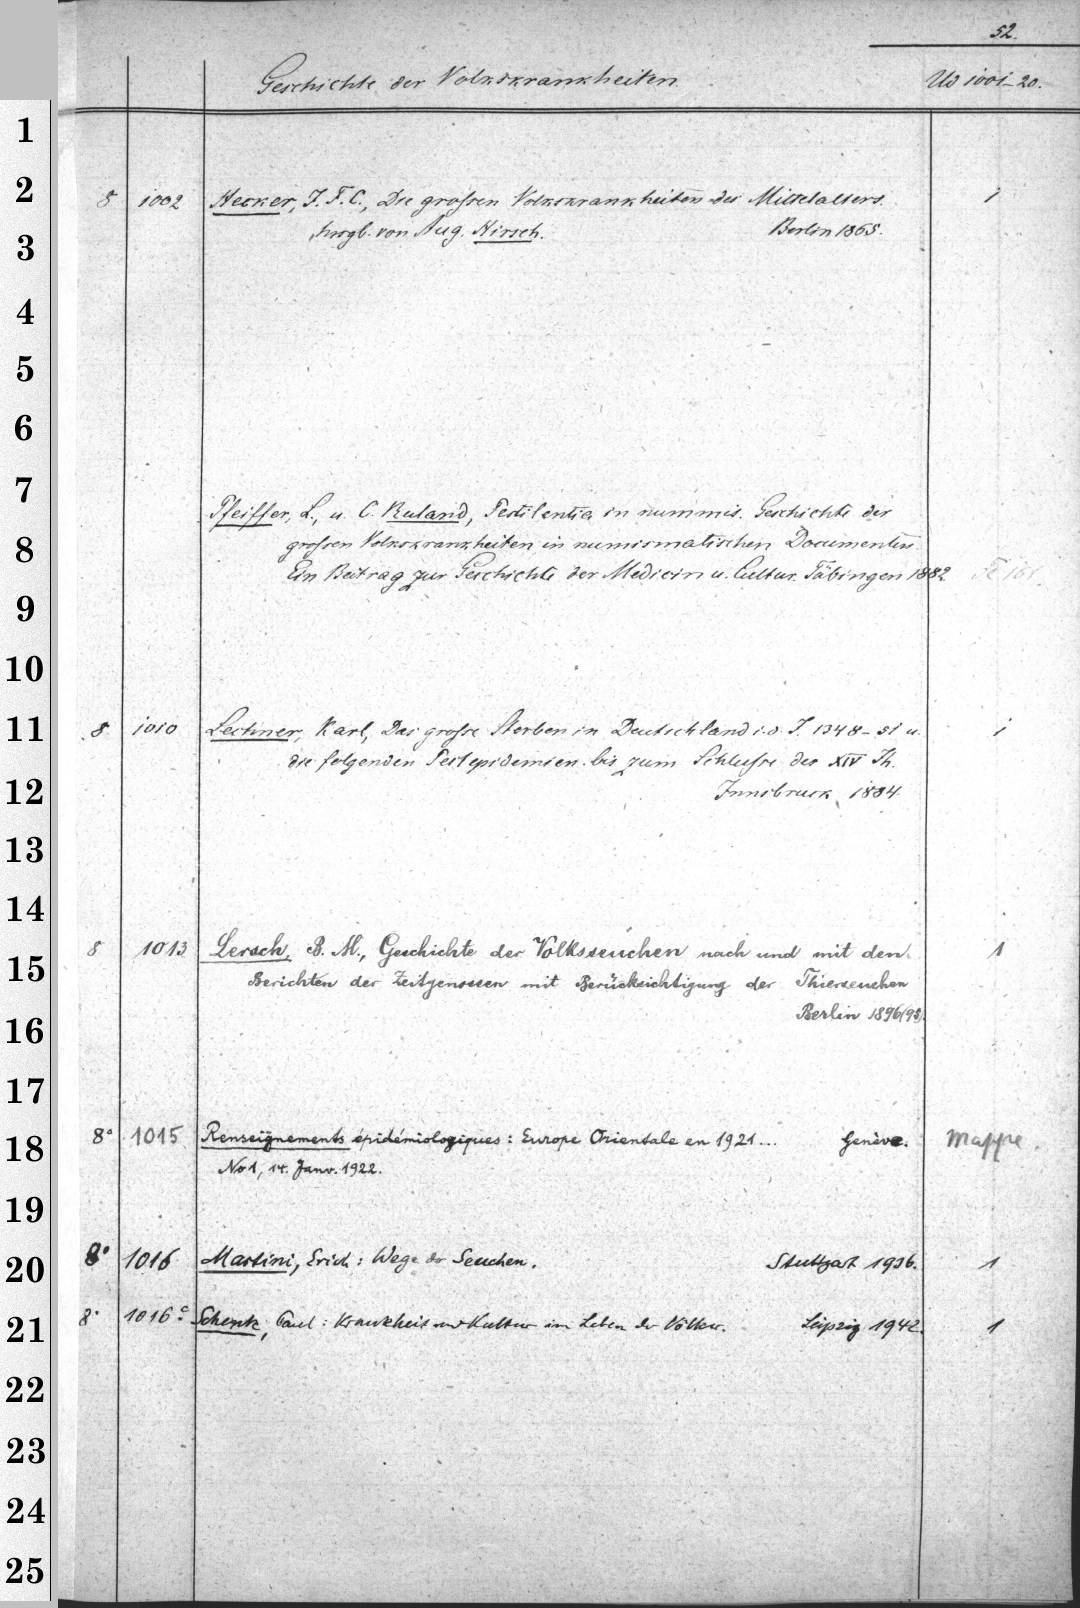 52.
Geschichte der Volkskrankheiten. Ud 1001-20.
1
2
8 1002 Hecker, J. F. C., Die grossen Volkskrankheiten des Mittelalters. 1
hrsgb. von Aug. Hirsch. Berlin 1865.
3
4
5
6
7
Pfeiffer, L., u. C. Ruland, Pestilentia in nummis. Geschichte der
8
grossen Volkskrankheiten in numismatischen Documenten.
Ein Beitrag zur Geschichte der Medicin u. Cultur. Tübingen 1882
9
10
11
8 1010 Lechner, Karl, Das grosse Sterben in Deutschland i. d. J. 1348-51 u. 1
die folgenden Pestepidemien bis zum Schlusse des XIV Jh.
12
Innsbruck 1884.
13
14
8 1013 Lersch, B. M., Geschichte der Volksseuchen nach und mit den 1
15
Berichten der Zeitgenossen mit Berücksichtigung der Thierseuchen
Berlin 1896(95)
16
17
8° 1015 Renseignements épidémiologiques: Europe Orientale en 1921... Genève. Mappe.
18
No 1, 14. Janv. 1922.
19
8° 1016 Martini, Erich: Wege der Seuchen. Stuttgart 1936. 1
20
8° 1016 c Schenk, Paul: Krankheit und Kultur im Leben der Völker. Leipzig 1942. 1
21
22
23
24
25